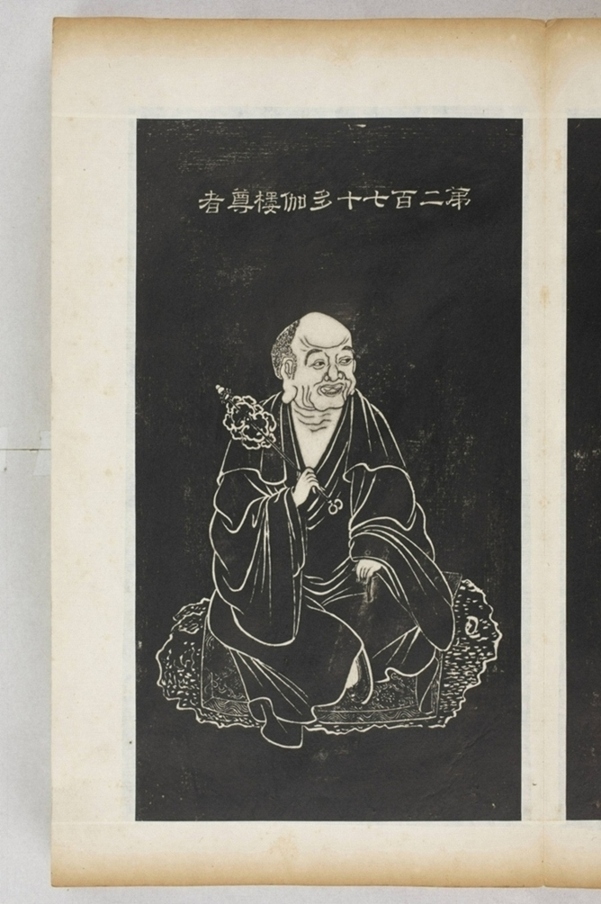 第二百七十多伽楼尊者